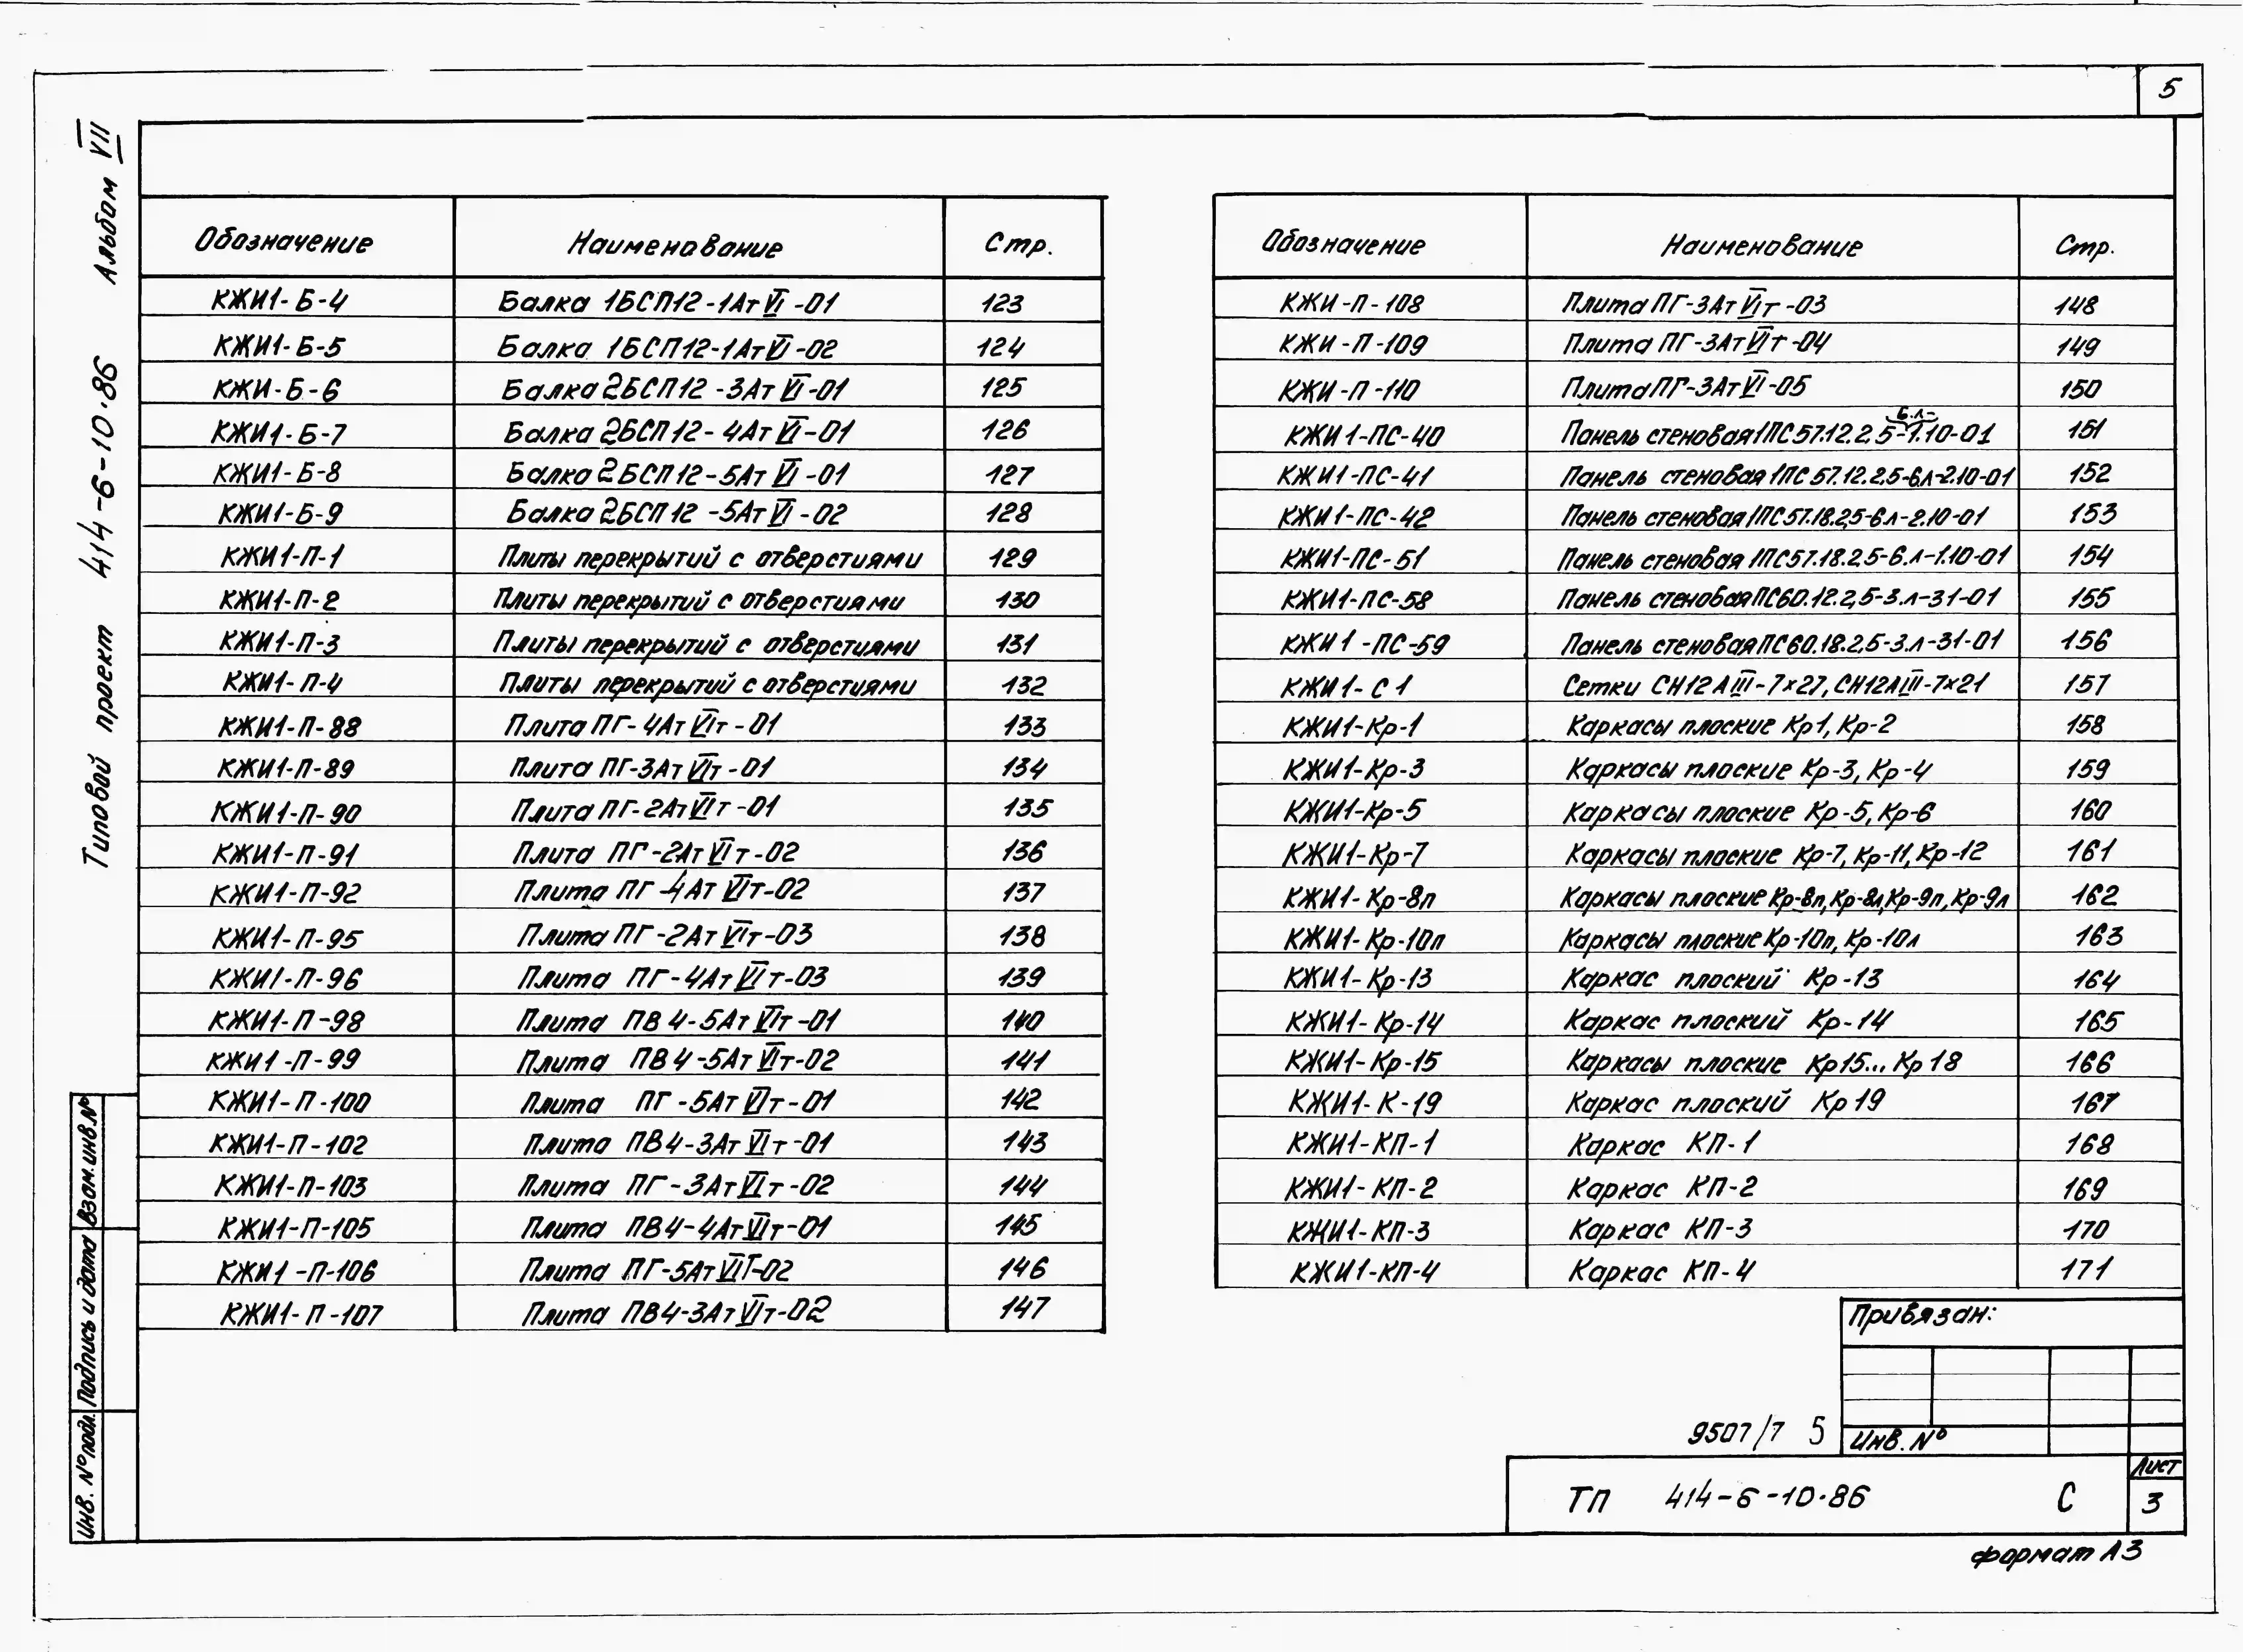 5
Альбом VII
Типовой проект 414-6-10.86
Взам.инв.№
Подпись и дата
Инв. № подл.
Обозначение Наименование Стр.
КЖИ1-Б-4 Балка 1БСП12-1АтVI-01 123
КЖИ1-Б-5 Балка 1БСП12-1АтVI-02 124
КЖИ-Б-6 Балка 2БСП12-3АтVI-01 125
КЖИ1-Б-7 Балка 2БСП12-4АтVI-01 126
КЖИ1-Б-8 Балка 2БСП12-5АтVI-01 127
КЖИ1-Б-9 Балка 2БСП12-5АтVI-02 128
КЖИ1-П-1 Плиты перекрытий с отверстиями 129
КЖИ1-П-2 Плиты перекрытий с отверстиями 130
КЖИ1-П-3 Плиты перекрытий с отверстиями 131
КЖИ1-П-4 Плиты перекрытий с отверстиями 132
КЖИ1-П-88 Плита ПГ-4АтVIт-01 133
КЖИ1-П-89 Плита ПГ-3АтVIт-01 134
КЖИ1-П-90 Плита ПГ-2АтVIт-01 135
КЖИ1-П-91 Плита ПГ-2АтVIт-02 136
КЖИ1-П-92 Плита ПГ-4АтVIт-02 137
КЖИ1-П-95 Плита ПГ-2АтVIт-03 138
КЖИ1-П-96 Плита ПГ-4АтVIт-03 139
КЖИ1-П-98 Плита ПВ4-5АтVIт-01 140
КЖИ1-П-99 Плита ПВ4-5АтVIт-02 141
КЖИ1-П-100 Плита ПГ-5АтVIт-01 142
КЖИ1-П-102 Плита ПВ4-3АтVIт-01 143
КЖИ1-П-103 Плита ПГ-3АтVIт-02 144
КЖИ1-П-105 Плита ПВ4-4АтVIт-01 145
КЖИ1-П-106 Плита ПГ-5АтVIт-02 146
КЖИ1-П-107 Плита ПВ4-3АтVIт-02 147
Обозначение Наименование Стр.
КЖИ-П-108 Плита ПГ-3АтVIт-03 148
КЖИ-П-109 Плита ПГ-3АтVIт-04 149
КЖИ-П-110 Плита ПГ-3АтVI-05 150
6.л-
КЖИ1-ПС-40 Панель стеновая 1ПС57.12.2.5-1.10-01 151
КЖИ1-ПС-41 Панель стеновая 1ПС57.12.2,5-6.л-2.10-01 152
КЖИ1-ПС-42 Панель стеновая 1ПС57.18.2,5-6л-2.10-01 153
КЖИ1-ПС-51 Панель стеновая 1ПС57.18.2,5-6.л-1.10-01 154
КЖИ1-ПС-58 Панель стеновая ПС60.12.2,5-3.л-31-01 155
КЖИ1-ПС-59 Панель стеновая ПС60.18.2,5-3.л-31-01 156
КЖИ1-С1 Сетки СН12АIII-7х27, СН12АIII-7х21 157
КЖИ1-Кр-1 Каркасы плоские Кр1, Кр-2 158
КЖИ1-Кр-3 Каркасы плоские Кр-3, Кр-4 159
КЖИ1-Кр-5 Каркасы плоские Кр-5, Кр-6 160
КЖИ1-Кр-7 Каркасы плоские Кр-7, Кр-11, Кр-12 161
КЖИ1-Кр-8п Каркасы плоские Кр-8п, Кр-8л, Кр-9п, Кр-9л 162
КЖИ1-Кр-10п Каркасы плоские Кр-10п, Кр-10л 163
КЖИ1-Кр-13 Каркас плоский Кр-13 164
КЖИ1-Кр-14 Каркас плоский Кр-14 165
КЖИ1-Кр-15 Каркасы плоские Кр15... Кр18 166
КЖИ1-К-19 Каркас плоский Кр19 167
КЖИ1-КП-1 Каркас КП-1 168
КЖИ1-КП-2 Каркас КП-2 169
КЖИ1-КП-3 Каркас КП-3 170
КЖИ1-КП-4 Каркас КП-4 171
Привязан:
9507/7 5
Инв. №
ТП 414-6-10.86 С
Лист
3
формат А3